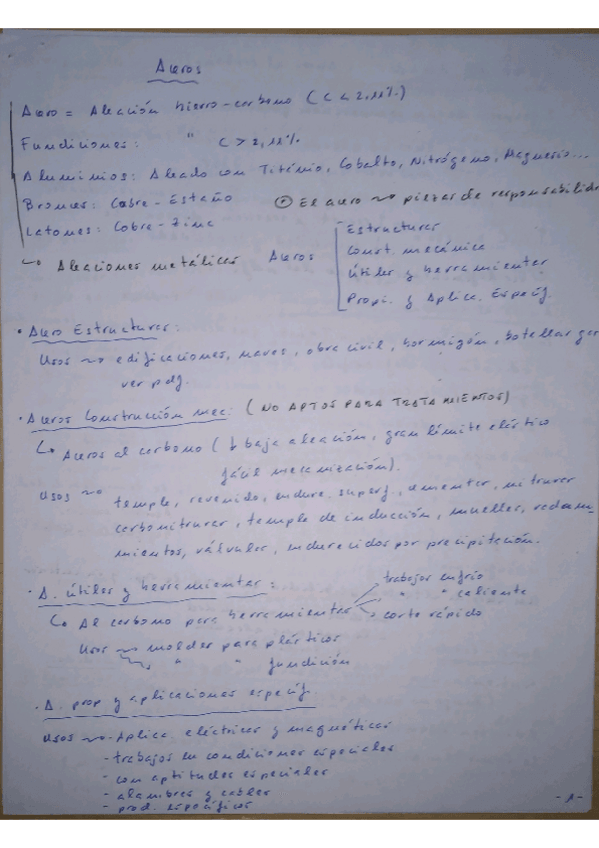 Aceros
Acero = Aleación hierro-carbono (C < 2,11%)
Fundiciones: " C > 2,11%
Aluminios: Aleado con Titanio, Cobalto, Nitrógeno, Magnesio...
Bronces: Cobre - Estaño
Latones: Cobre - Zinc
Aleaciones metálicas
El acero piezas de responsabilid
Aceros
Estructuras
Const. mecánica
Útiles y herramientas
Propi. y Aplica. Específ.
· Acero Estructuras:
Usos edificaciones, naves, obra civil, hormigón, botellas gas
ver pdf.
· Aceros Construcción mec: (NO APTOS PARA TRATAMIENTOS)
Aceros al carbono (↓ baja aleación, gran límite elástico
fácil mecanización).
Usos temple, revenido, endure. superf., cementar, nitrurar
carbonitrurar, temple de inducción, muelles, rodami-
mientos, válvulas, endurecidos por precipitación.
· A. útiles y herramientas:
Al carbono para herramientas
trabajos en frío
" " caliente
corte rápido
Usos moldes para plásticos
" " fundición
· A. prop y aplicaciones específ.
Usos - Aplica. eléctricas y magnéticas
- trabajos en condiciones especiales
- con aptitudes especiales
- alambres y cables
- prod. específicos
-1-